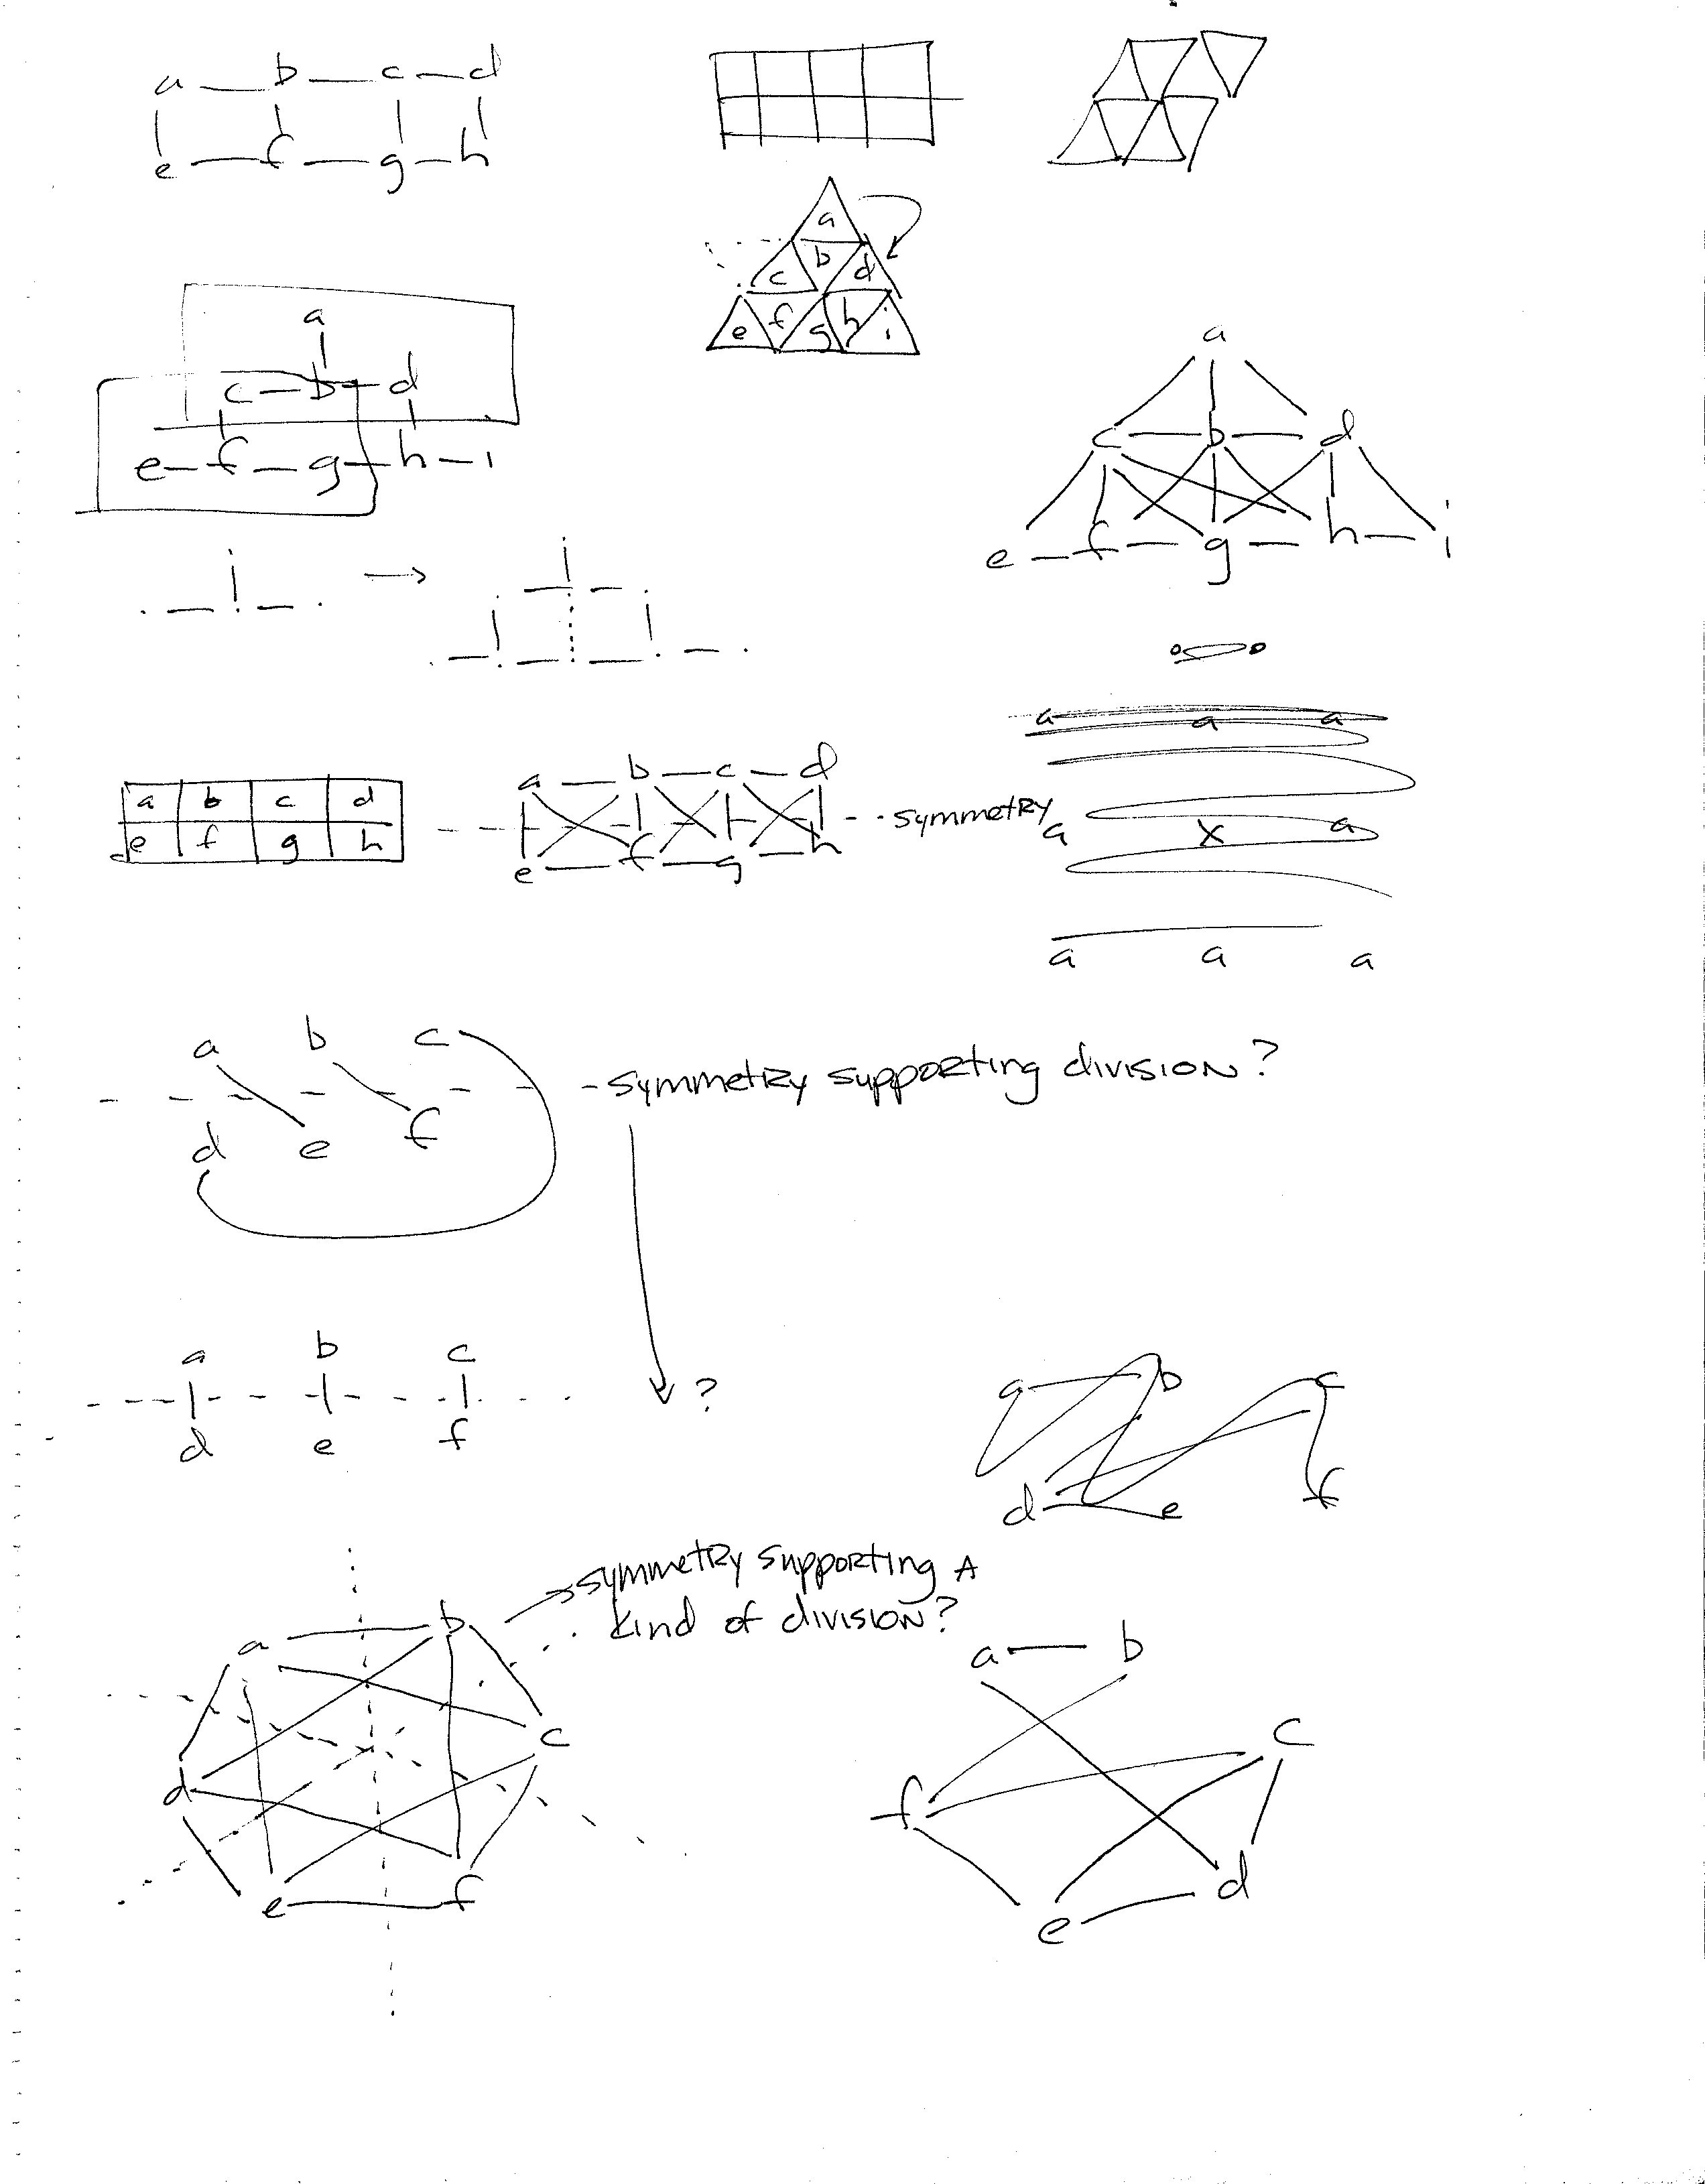 a b c d
e f g h
a
c b d
e f g h i
a
c b d
e f g h i
a
c b d
e f g h i
a a a
a b c d
e f g h
a b c d
e f g h
symmetry
a x a
a a a
a b c
d e f
symmetry supporting division?
a b c
d e f
?
a b c
d e f
symmetry supporting A
kind of division?
a b
c
d
e f
a b
c
f
d
e